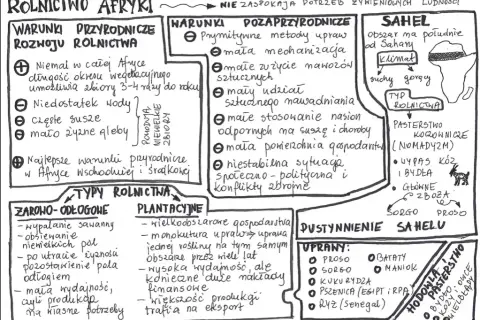 ROLNICTWO AFRYKI → NIE ZASPOKAJA POTRZEB ŻYWIENIOWYCH LUDNOŚCI
WARUNKI PRZYRODNICZE
ROZWOJU ROLNICTWA
+ Niemal w całej Afryce
długość okresu wegetacyjnego
umożliwia zbiory 3-4 razy do roku
- Niedostatek wody
- Częste susze
- mało żyzne gleby
POWODUJĄ
NIEWIELKIE
ZBIORY
+ Najlepsze warunki przyrodnicze
w Afryce Wschodniej i Środkowej
WARUNKI POZAPRZYRODNICZE
- Prymitywne metody upraw
- mała mechanizacja
- małe zużycie nawozów
sztucznych
- mały udział
sztucznego nawadniania
- małe stosowanie nasion
odpornych na suszę i choroby
- mała powierzchnia gospodarstw
- niestabilna sytuacja
społeczno-polityczna i
konflikty zbrojne
SAHEL
obszar na południe
od Sahary
klimat
suchy gorący
TYP
ROLNICTWA
PASTERSTWO
KOCZOWNICZE
(NOMADYZM)
• WYPAS KÓZ
I BYDŁA
• GŁÓWNE
ZBOŻA
SORGO PROSO
PUSTYNNIENIE SAHELU
TYPY ROLNICTWA
ŻAROWO-ODŁOGOWE
- wypalanie sawanny
- obsiewanie
niewielkich pól
- po utracie żyzności
pozostawienie pola
odłogiem
- mała wydajność,
czyli produkcja
na własne potrzeby
PLANTACYJNE
- wielkoobszarowe gospodarstwa
- monokultura uprawy = uprawa
jednej rośliny na tym samym
obszarze przez wiele lat
- wysoka wydajność, ale
konieczne duże nakłady
finansowe
- większość produkcji
trafia na eksport
UPRAWY:
PROSO
SORGO
KUKURYDZA
PSZENICA (EGIPT i RPA)
RYŻ (Senegal)
BATATY
MANIOK
HODOWLA I
PASTERSTWO